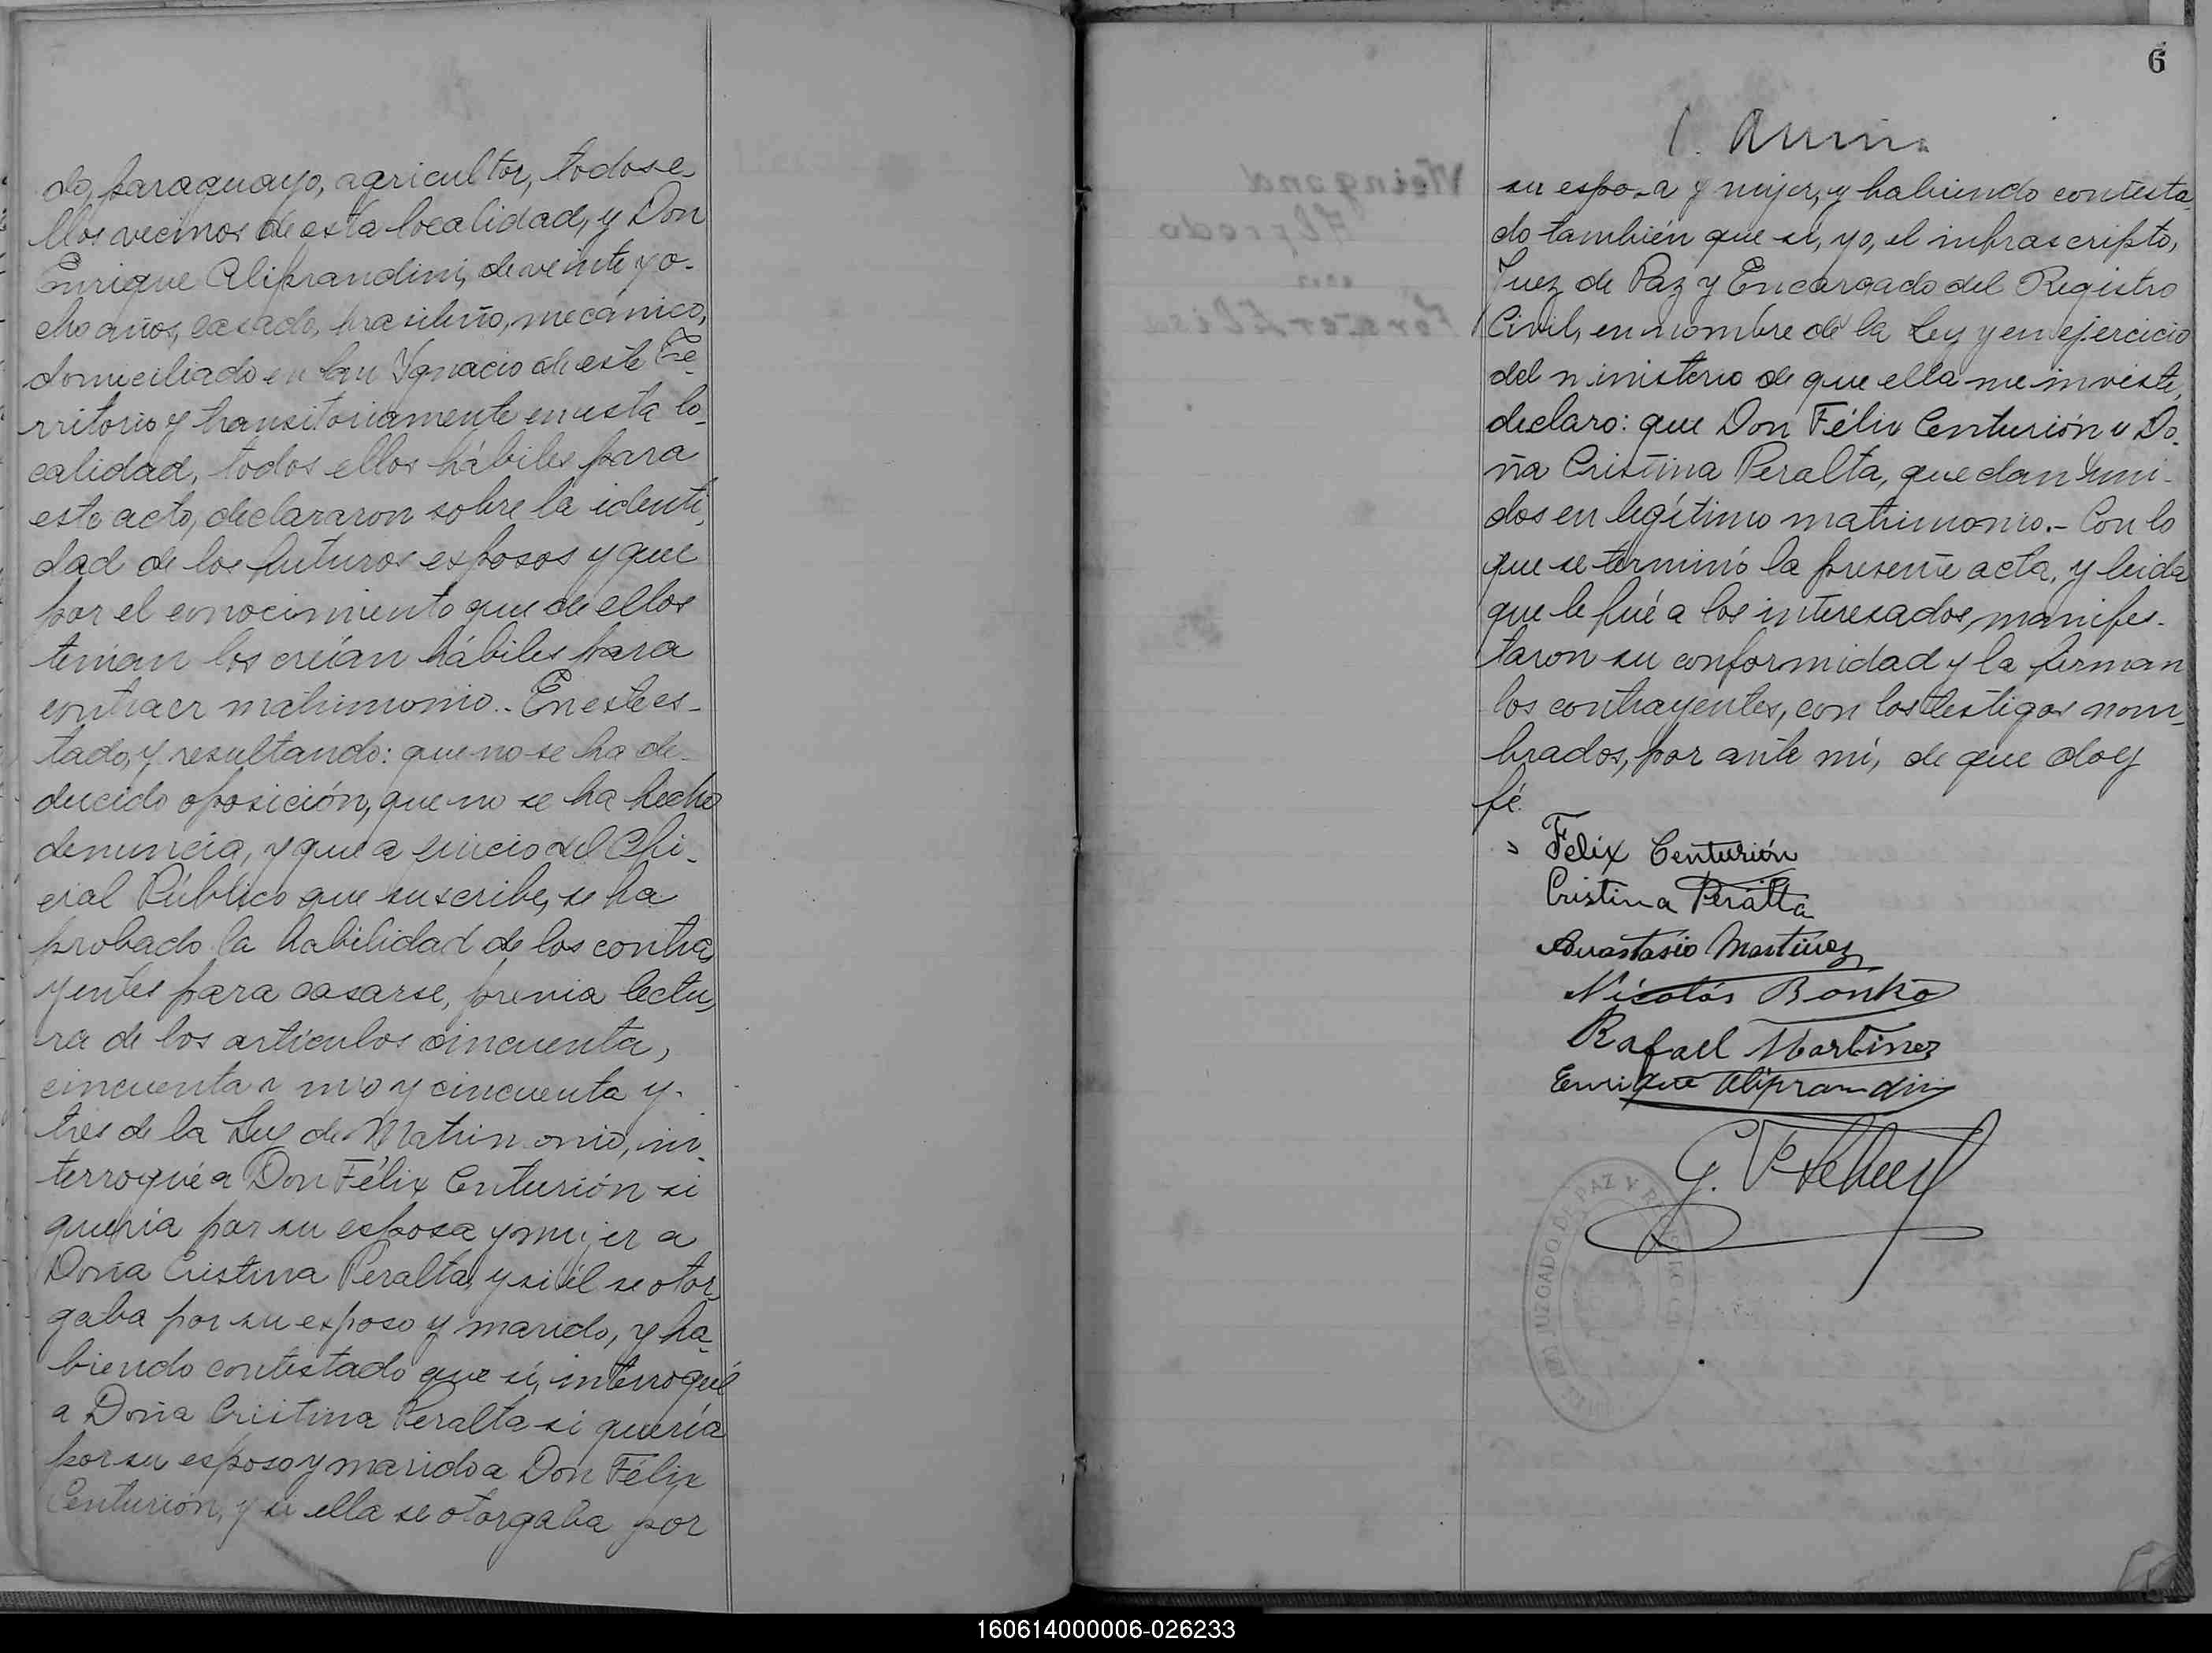 do, paraguayo, agricultor, todos e-
llos vecinos de esta localidad, y Don
Enrique Aliprandini, de veinte y o-
cho años, casado, brasileño, mecánico,
domiciliado en San Ygnacio de este Te-
rritorio y transitoriamente en esta lo-
calidad, todos ellos hábiles para
este acto, declararon sobre la identi-
dad de los futuros esposos y que
por el conocimiento que de ellos
tenian los creían hábiles para
contraer matrimonio.- En este es-
tado, y resultando: que no se ha de-
ducido oposición, que no se ha hecho
denuncia, y que a juicio del Ofi-
cial Público que suscribe, se ha
probado la habilidad de los contra
yentes para casarse, previa lectu-
ra de los artículos cincuenta,
cincuenta y uno y cincuenta y
tres de la Ley de Matrimonio, in-
terrogué a Don Félix Centurión si
quería por su esposa y mujer a
Doña Cristina Peralta, y si él se otor-
gaba por su esposo y marido, y ha-
biendo contestado que sí, interrogué
a Doña Cristina Peralta si quería
por su esposo y marido a Don Félix
Centurión, y si ella se otorgaba por
6
su esposa y mujer, y habiendo contesta
do también que si, yo, el infrascripto,
Juez de Paz y Encargado del Registro
Civil, en nombre de la Ley y en ejercicio
del ministerio de que ella me inviste,
declaro: que Don Félix Centurión y Do-
ña Cristina Peralta, quedan uni-
dos en legítimo matrimonio.- Con lo
que se terminó la presente acta, y leida
que le fué a los interesados, manifes-
taron su conformidad y la firman
los contrayentes, con los testigos nom-
brados, por ante mí, de que doy
fé.
Felix Centurión
Cristina Peralta
Anastasio Martinez
Nicolás Bonko
Rafael Martinez
Enrique Aliprandini
JUZGADO DE PAZ Y
160614000006-026233